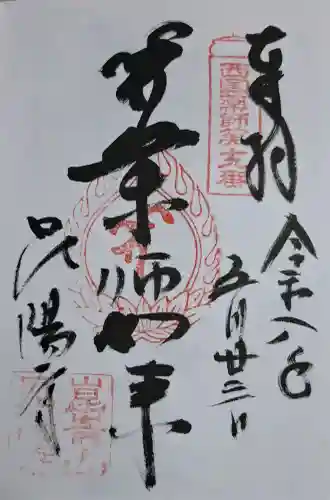 奉拝
西国薬師第十九番
令和八年
五月廿三日
薬師如来
昆陽寺